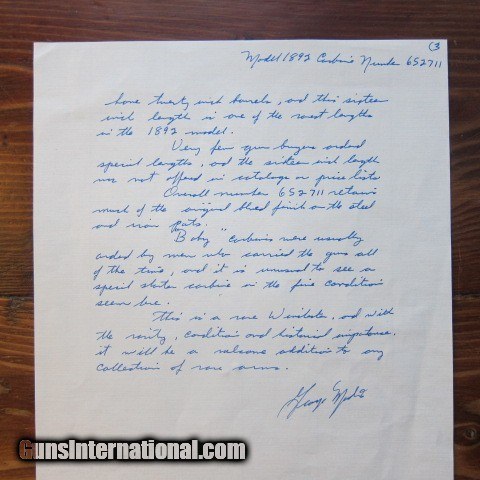 (3
Model 1892 Carbine Number 652711
have twenty inch barrels, and this sixteen
inch length is one of the rarest lengths
in the 1892 model.
Very few gun buyers ordered
special lengths, and the sixteen inch length
was not offered in catalogs or price lists
Overall number 652711 retains
much of the original blued finish on the steel
and iron parts.
"Baby" carbines were usually
ordered by men who carried the guns all
of the time, and it is unusual to see a
special shorter carbine in the fine condition
seen here.
This is a rare Winchester, and with
the rarity, condition and historical importance,
it will be a welcome addition to any
collection of rare arms.
George Madis
GunsInternational.com